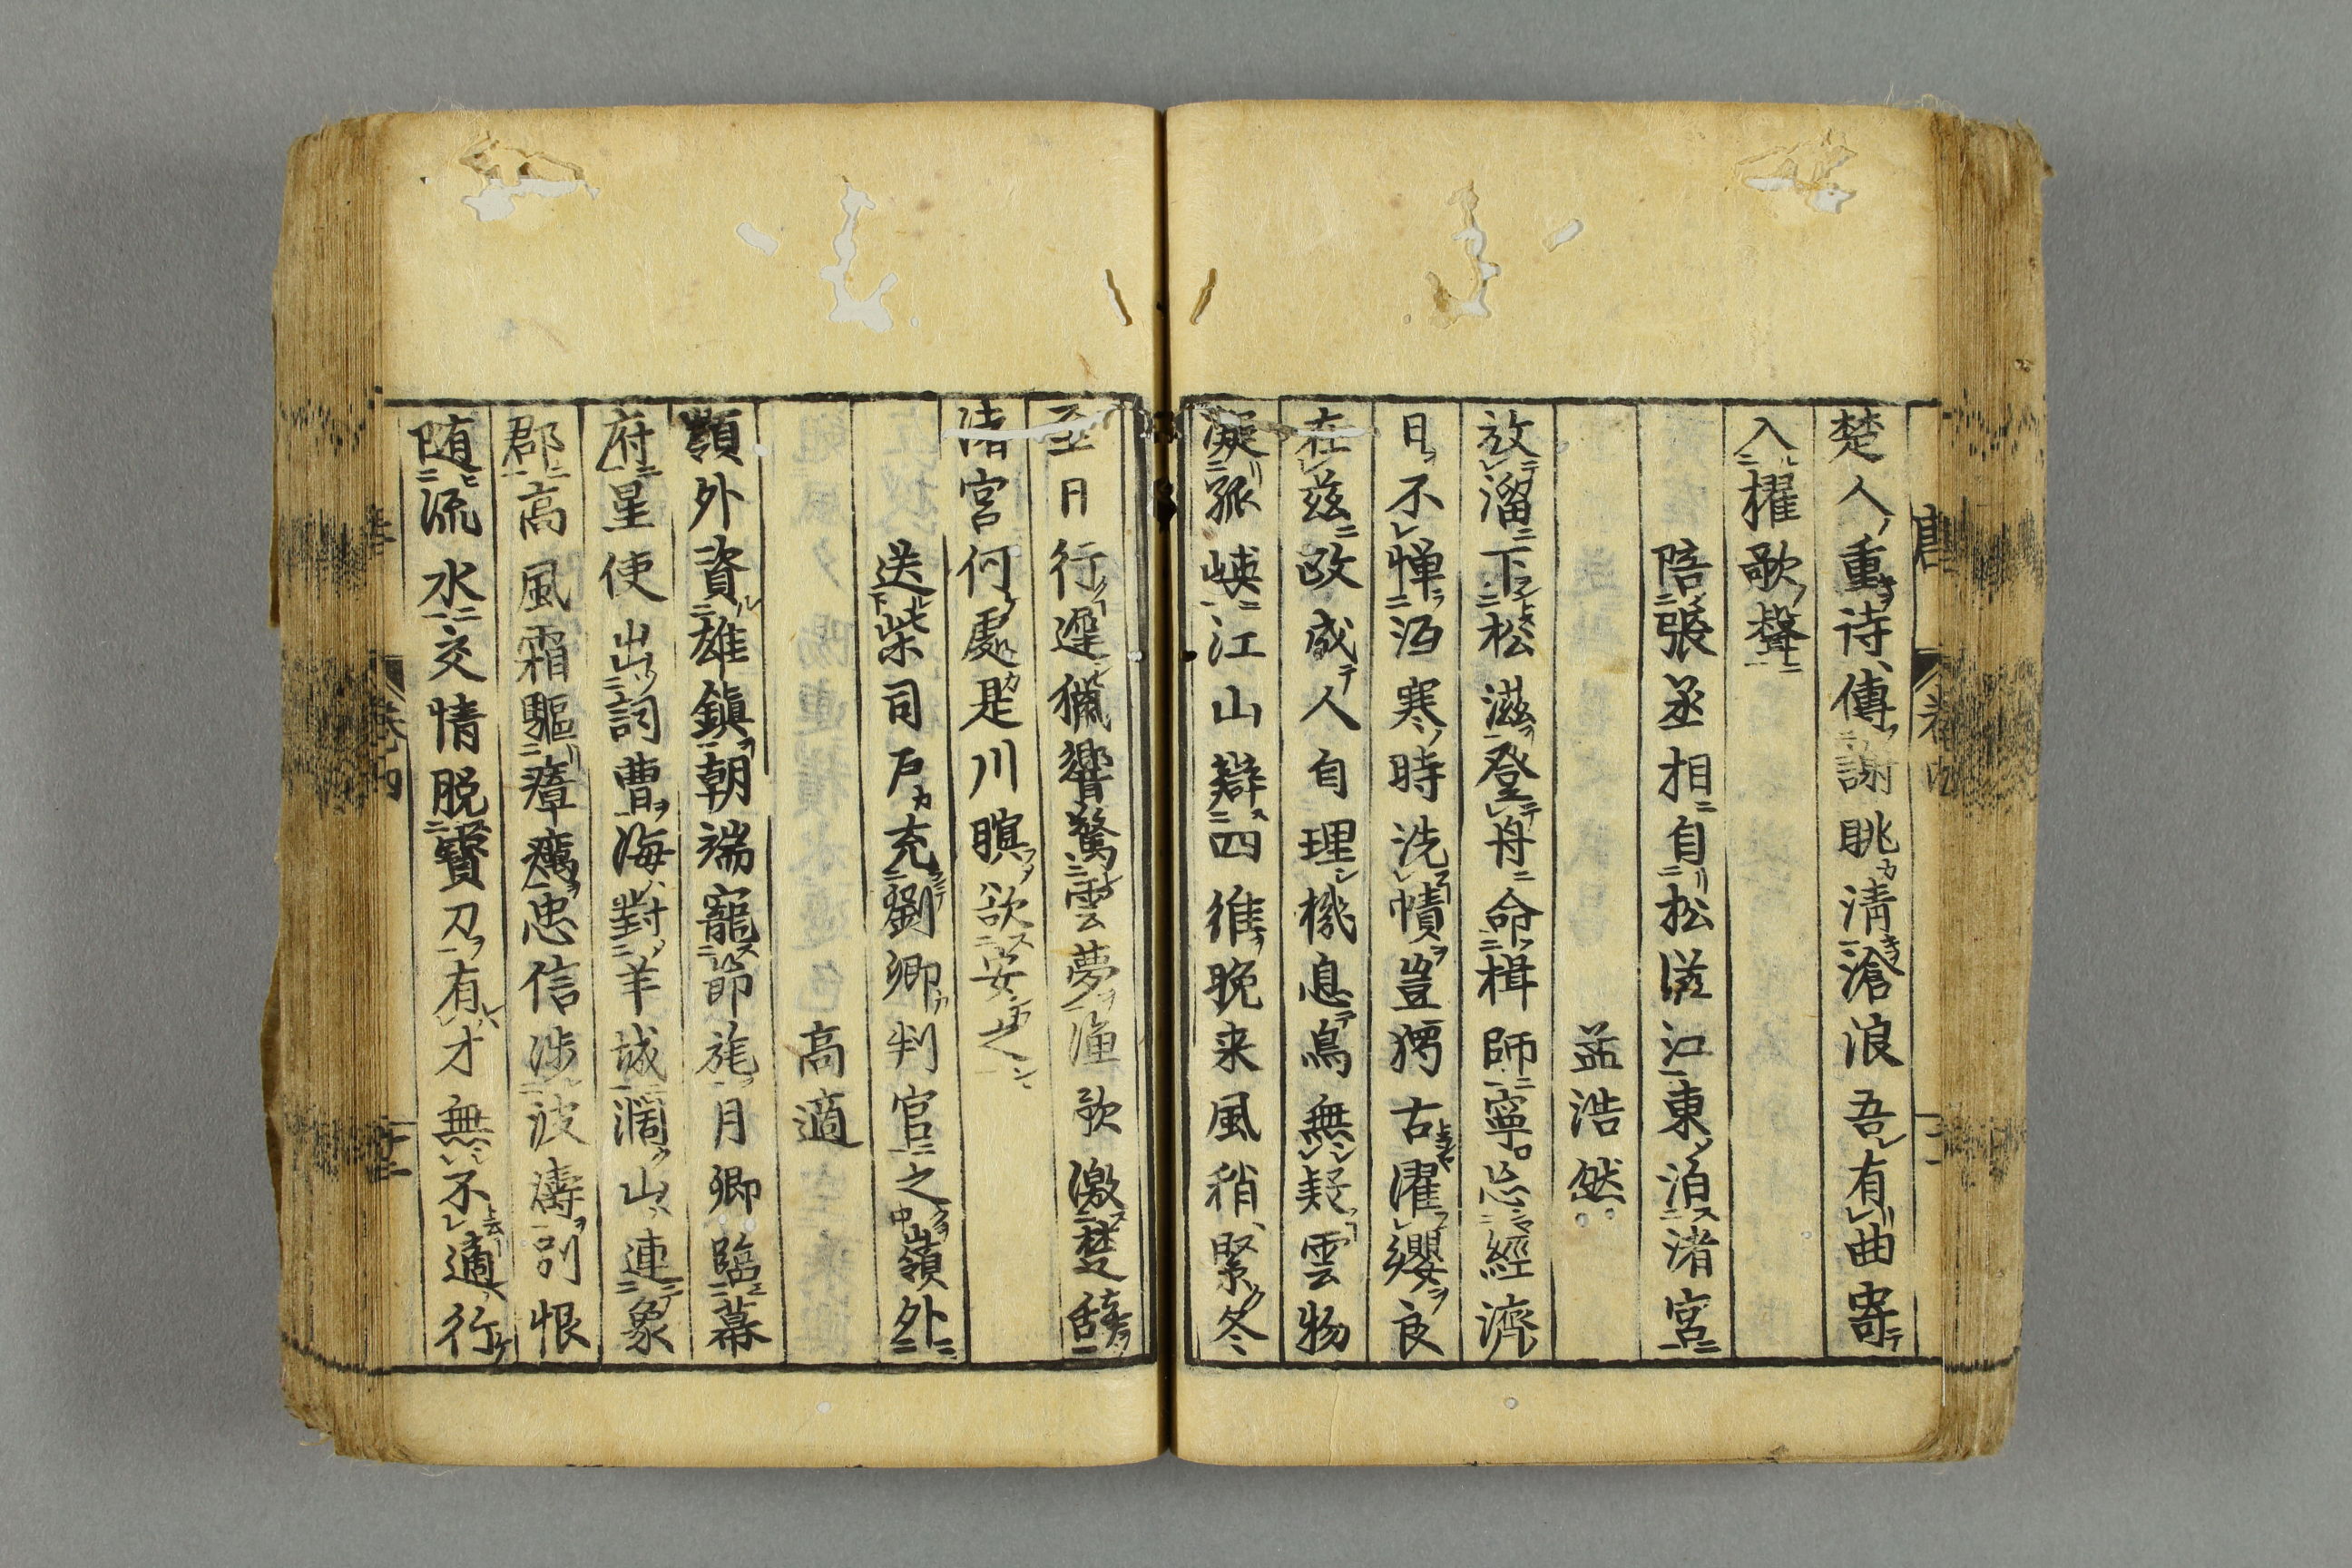 楚人重詩傳謝眺清滄浪吾有曲寄
入櫂歌聲
陪張丞相自松滋江東泊渚宮
孟浩然
放溜下松滋登舟命楫師寧忘經濟
日不憚沍寒時洗幘豈獨古濯纓良
在茲政成人自理機息鳥無疑雲物
凝孤嶼江山辯四維晩来風稍緊冬
至日行遲獵響驚雲夢漁歌激楚辭
渚宮何處是川暝欲安之
送柴司戸充劉卿判官之嶺外
高適
嶺外資雄鎮朝端寵節旄月卿臨幕
府星使出詞曹海對羊城濶山連象
郡高風霜驅瘴癘忠信渉波濤別恨
随流水交情脱寶刀有才無不適行